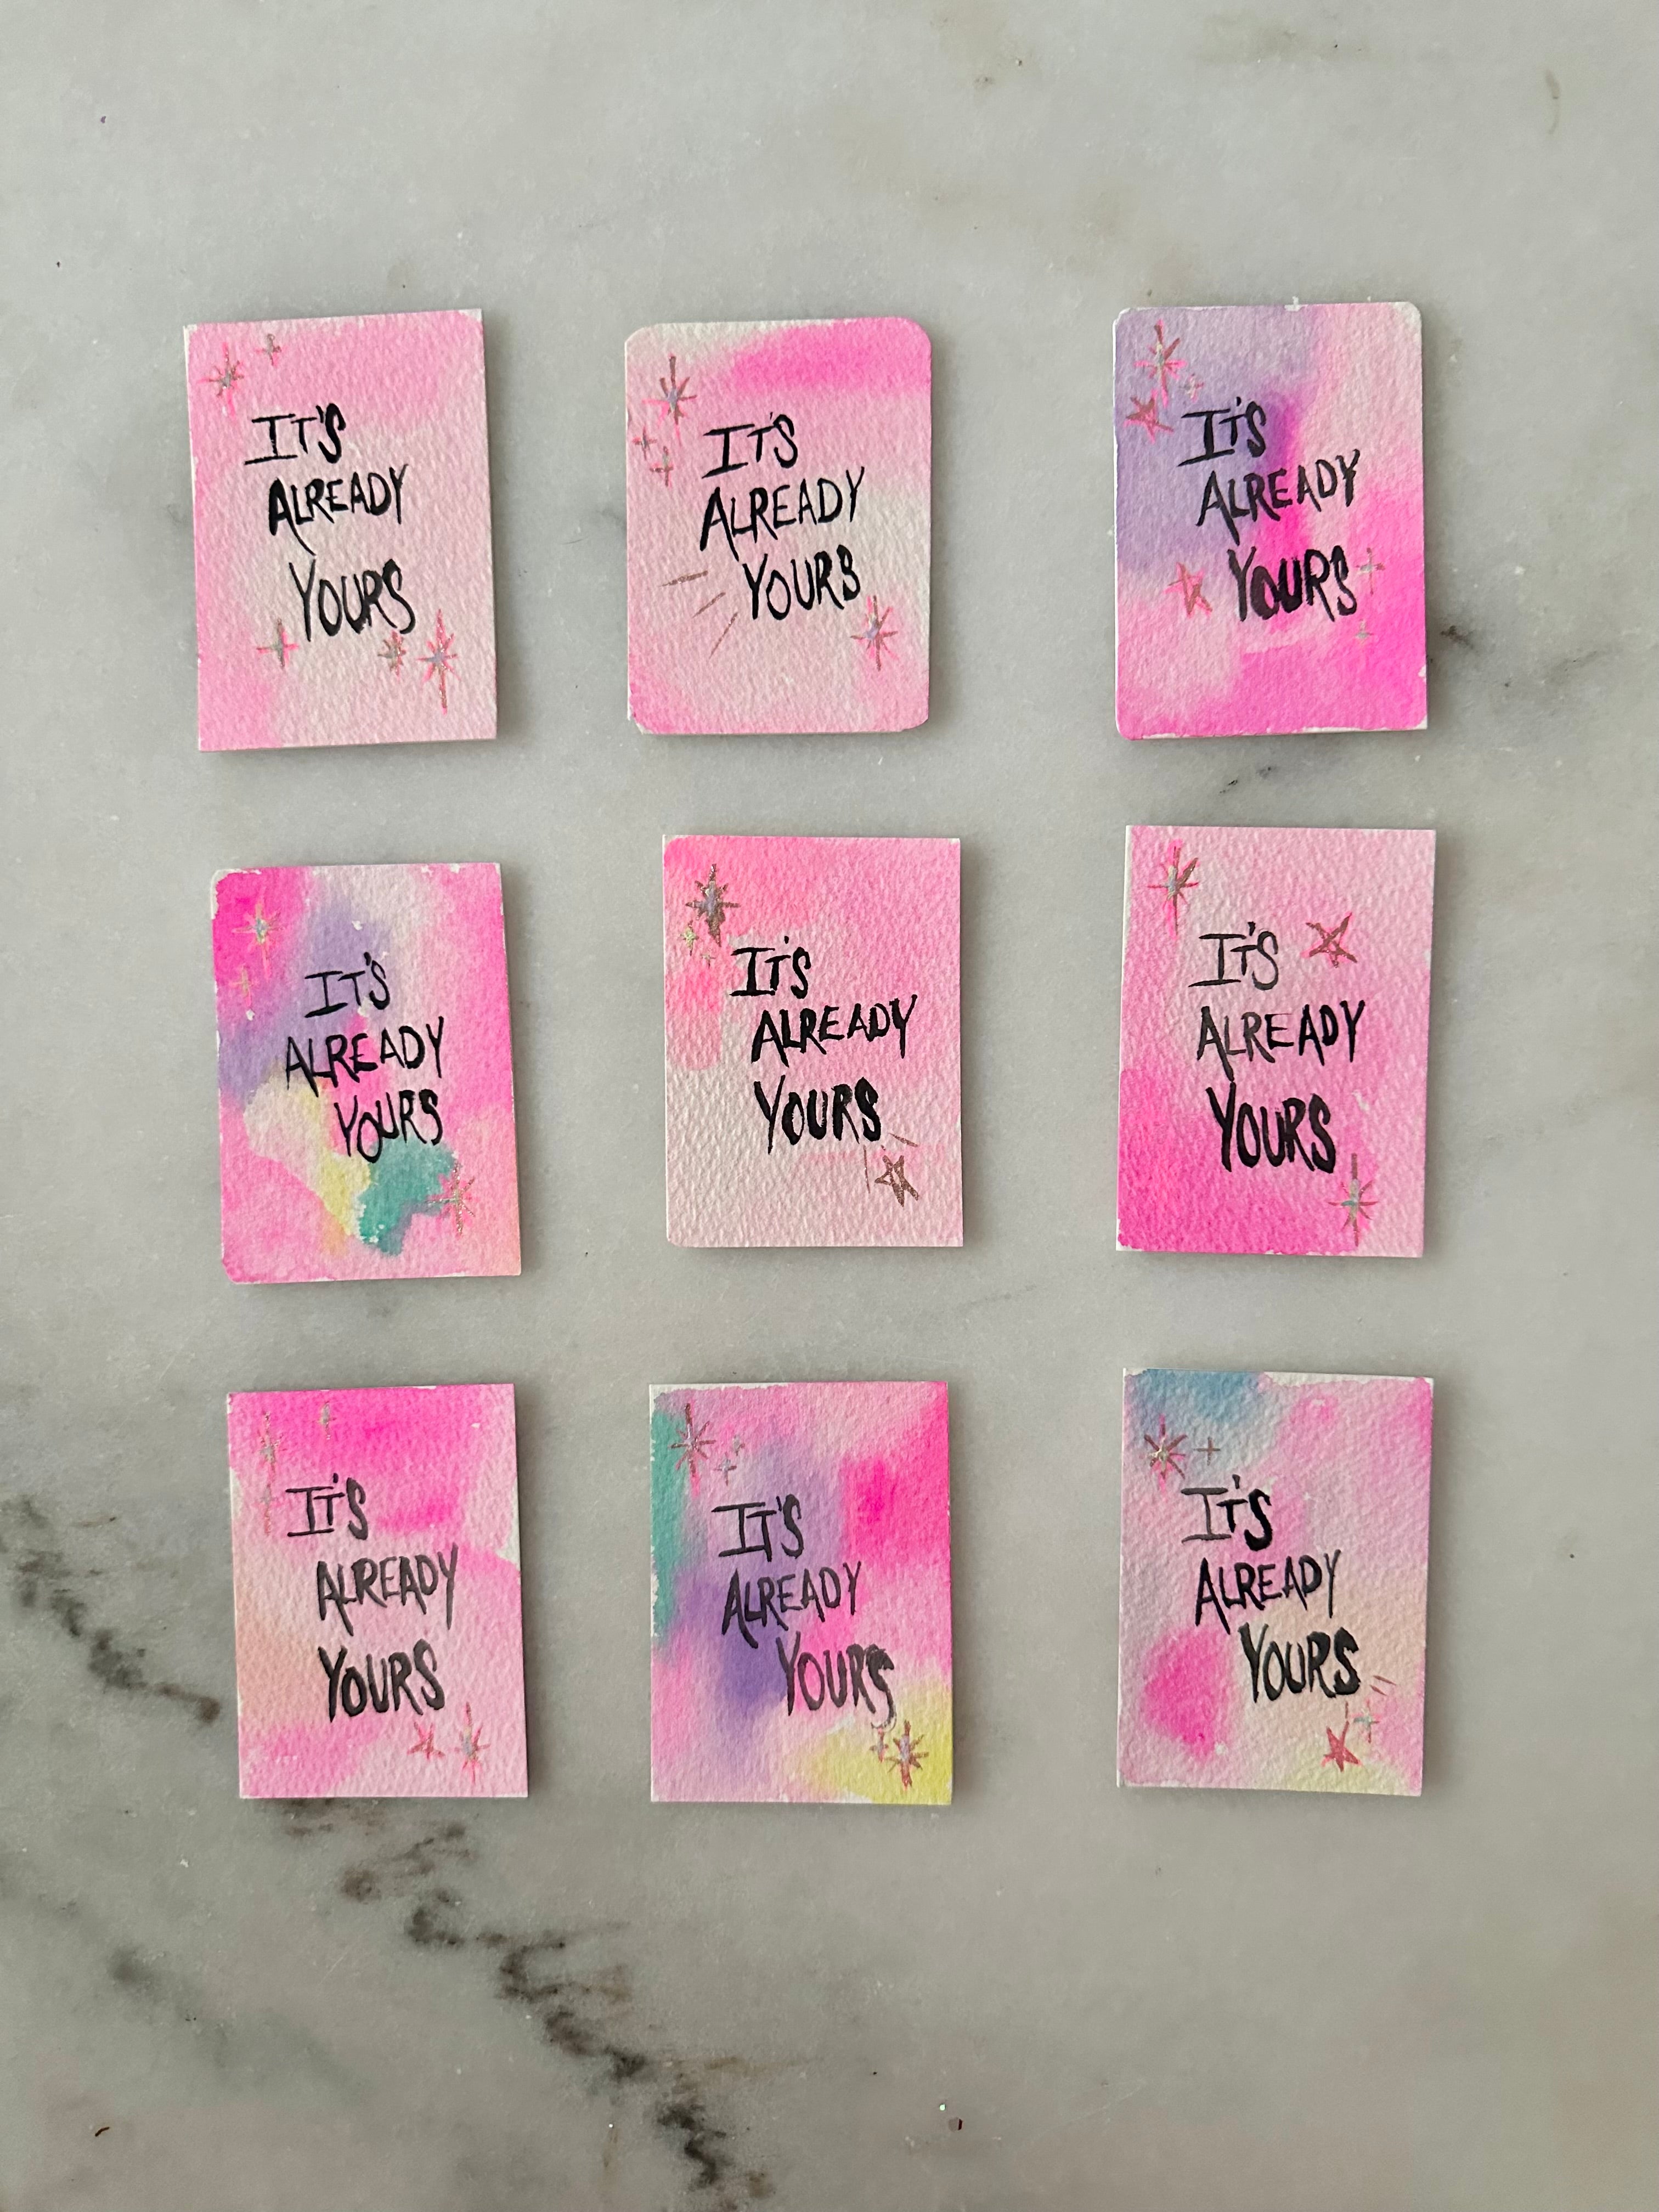 IT'S
ALREADY
YOURS
IT'S
ALREADY
YOURS
IT'S
ALREADY
YOURS
IT'S
ALREADY
YOURS
IT'S
ALREADY
YOURS
IT'S
ALREADY
YOURS
IT'S
ALREADY
YOURS
IT'S
ALREADY
YOURS
IT'S
ALREADY
YOURS